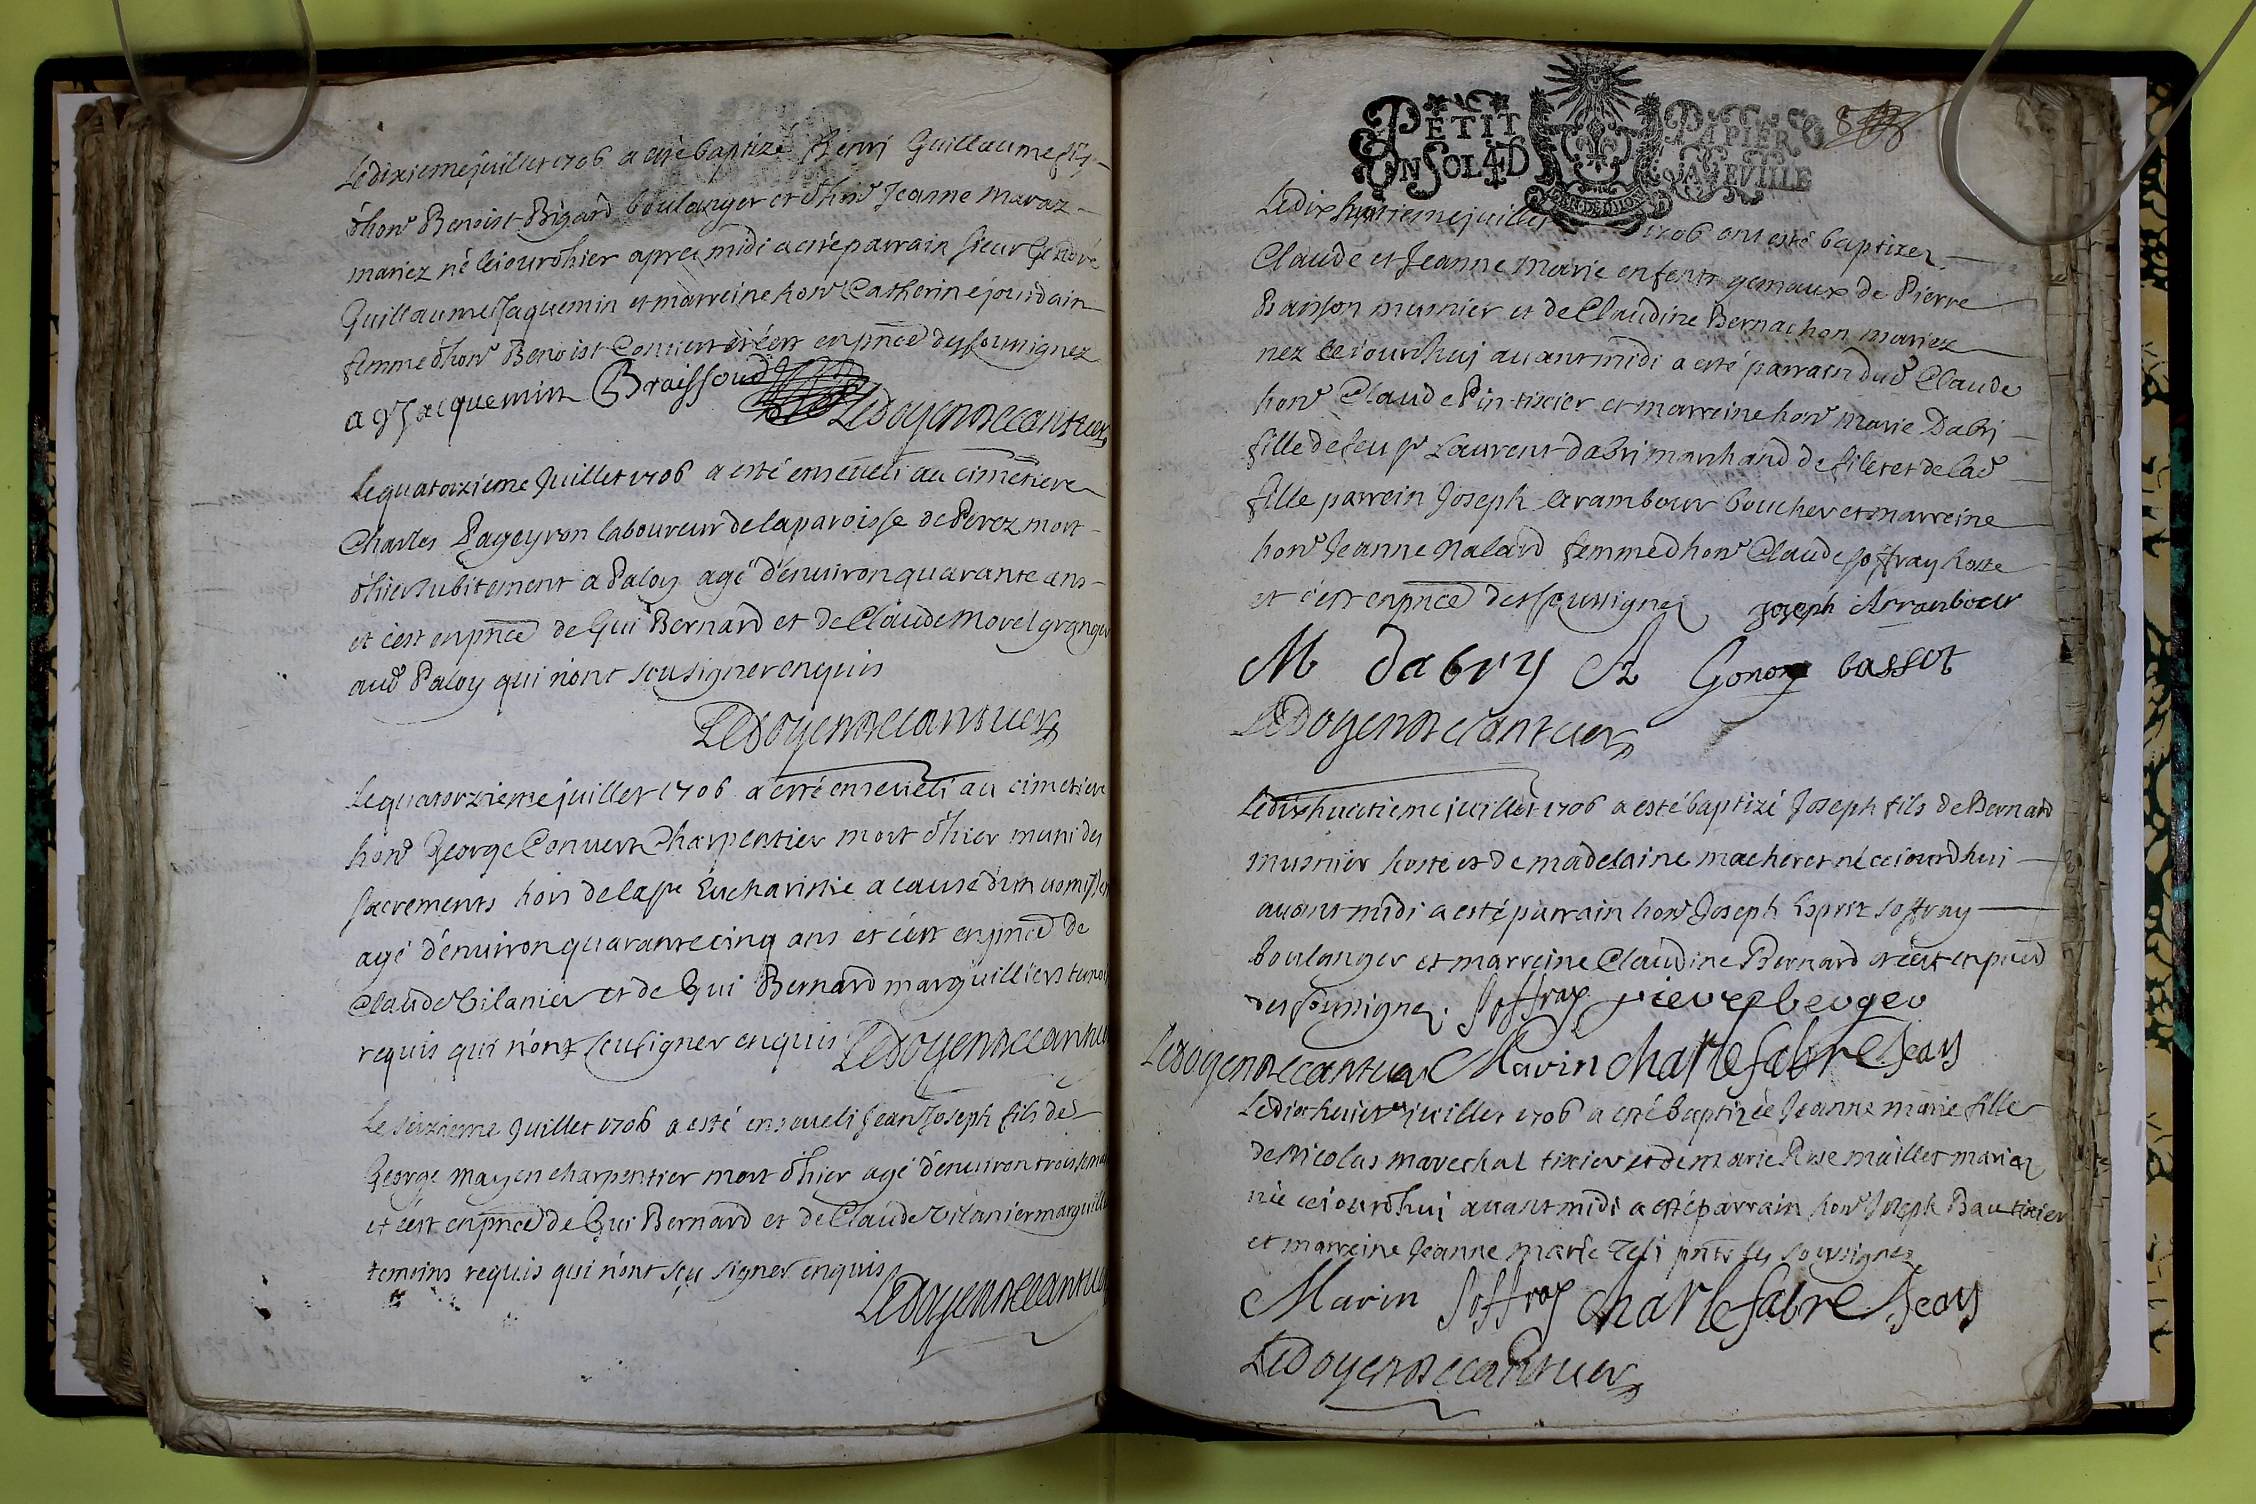 Le dixieme juillet 1706 a esté baptizé Henri Guillaume fils
d'hon^e Benoist Bigard boulanger et d'hon^e Jeanne Maraz
mariez né le jour d'hier apres midi a esté parrain sieur
Guillaume Jaquemin et marreine hon^e Catherine jourdain
femme d'hon^e Benoist Convert et c'est en pnce des soussignez
a g Jacquemin Braissoud
Ledoyen de cantuer
Le quatorzieme Juillet 1706 a esté enseveli au cimetiere
Charles Pageyron laboureur de la paroisse de Perez mort
d'hier subitement a Paloy agé d'environ quarante ans
et c'est en pnce de Gui Bernard et de Claude Morel granger
aud Paloy qui n'ont sceu signer enquis
Ledoyen de cantuer
Le quatorzieme juillet 1706 a esté enseveli au cimetiere
hon^e George Convert Charpentier mort d'hier muni des
sacrements hors de la s^te Eucharistie a cause d'un
agé d'environ quarante cinq ans et c'est en pnce de
Claude Vilanier et de Gui Bernard marguilliers
requis qui n'ont sceu signer enquis Ledoyen de cantuer
Le seizieme Juillet 1706 a esté enseveli Jean Joseph fils de
George mayen charpentier mort d'hier agé d'environ trois
et c'est en pnce de Gui Bernard et de Claude Vilanier
temoins requis qui n'ont sceu signer enquis
Ledoyen de cantuer
PETIT PAPIER
UN SOL 4 D LA FEVILLE
GEN DE DIION
Le dix huitieme juillet 1706 ont esté baptizez
Claude et Jeanne Marie enfents gemaux de Pierre
Baisson musnier et de Claudine Bernachon mariez
nez ce jourdhuj avant midi a esté parrain dud Claude
hon^e Claude Pin tixier et marreine hon^e Marie Dabri
fille de feu s^r Laurent dabri marchand de filet et de lad
fille parrein Joseph arambour boucher et marreine
hon^e Jeanne Nalard femme d'hon^e Claude Joffray hoste
et c'est en pnce des soussignez joseph Arranbour
M dabry Gonon bassot
Ledoyen de cantuer
Le dix huitieme juillet 1706 a esté baptizé Joseph fils de Bernard
musnier hoste et de madelaine macheret né ce jourdhui
avant midi a esté parrain hon^e Joseph Esprit Joffray
boulanger et marreine Claudine Bernard et c'est en pnce
des soussignez. Joffray pierre berger
Ledoyen de cantuer Marin charle fabre Jean
Le dix huict^e juillet 1706 a esté baptizée Jeanne marie fille
de Nicolas marechal tixier et de marie Rose maillet mariez
née ce jourdhui avant midi a esté parrain hon^e Joseph Bau tixier
et marreine Jeanne marie Tesi pnts les soussignez
Marin Joffray charle fabre Jean
Ledoyen de cantuer